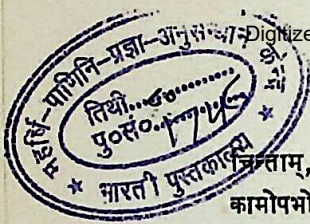 Digitize
महर्षि-पाणिनि-प्रज्ञा-अनुसन्धान
तिथी
पु०सं०....174
भारती पुस्तकालय
चिन्ताम्,
कामोपभो